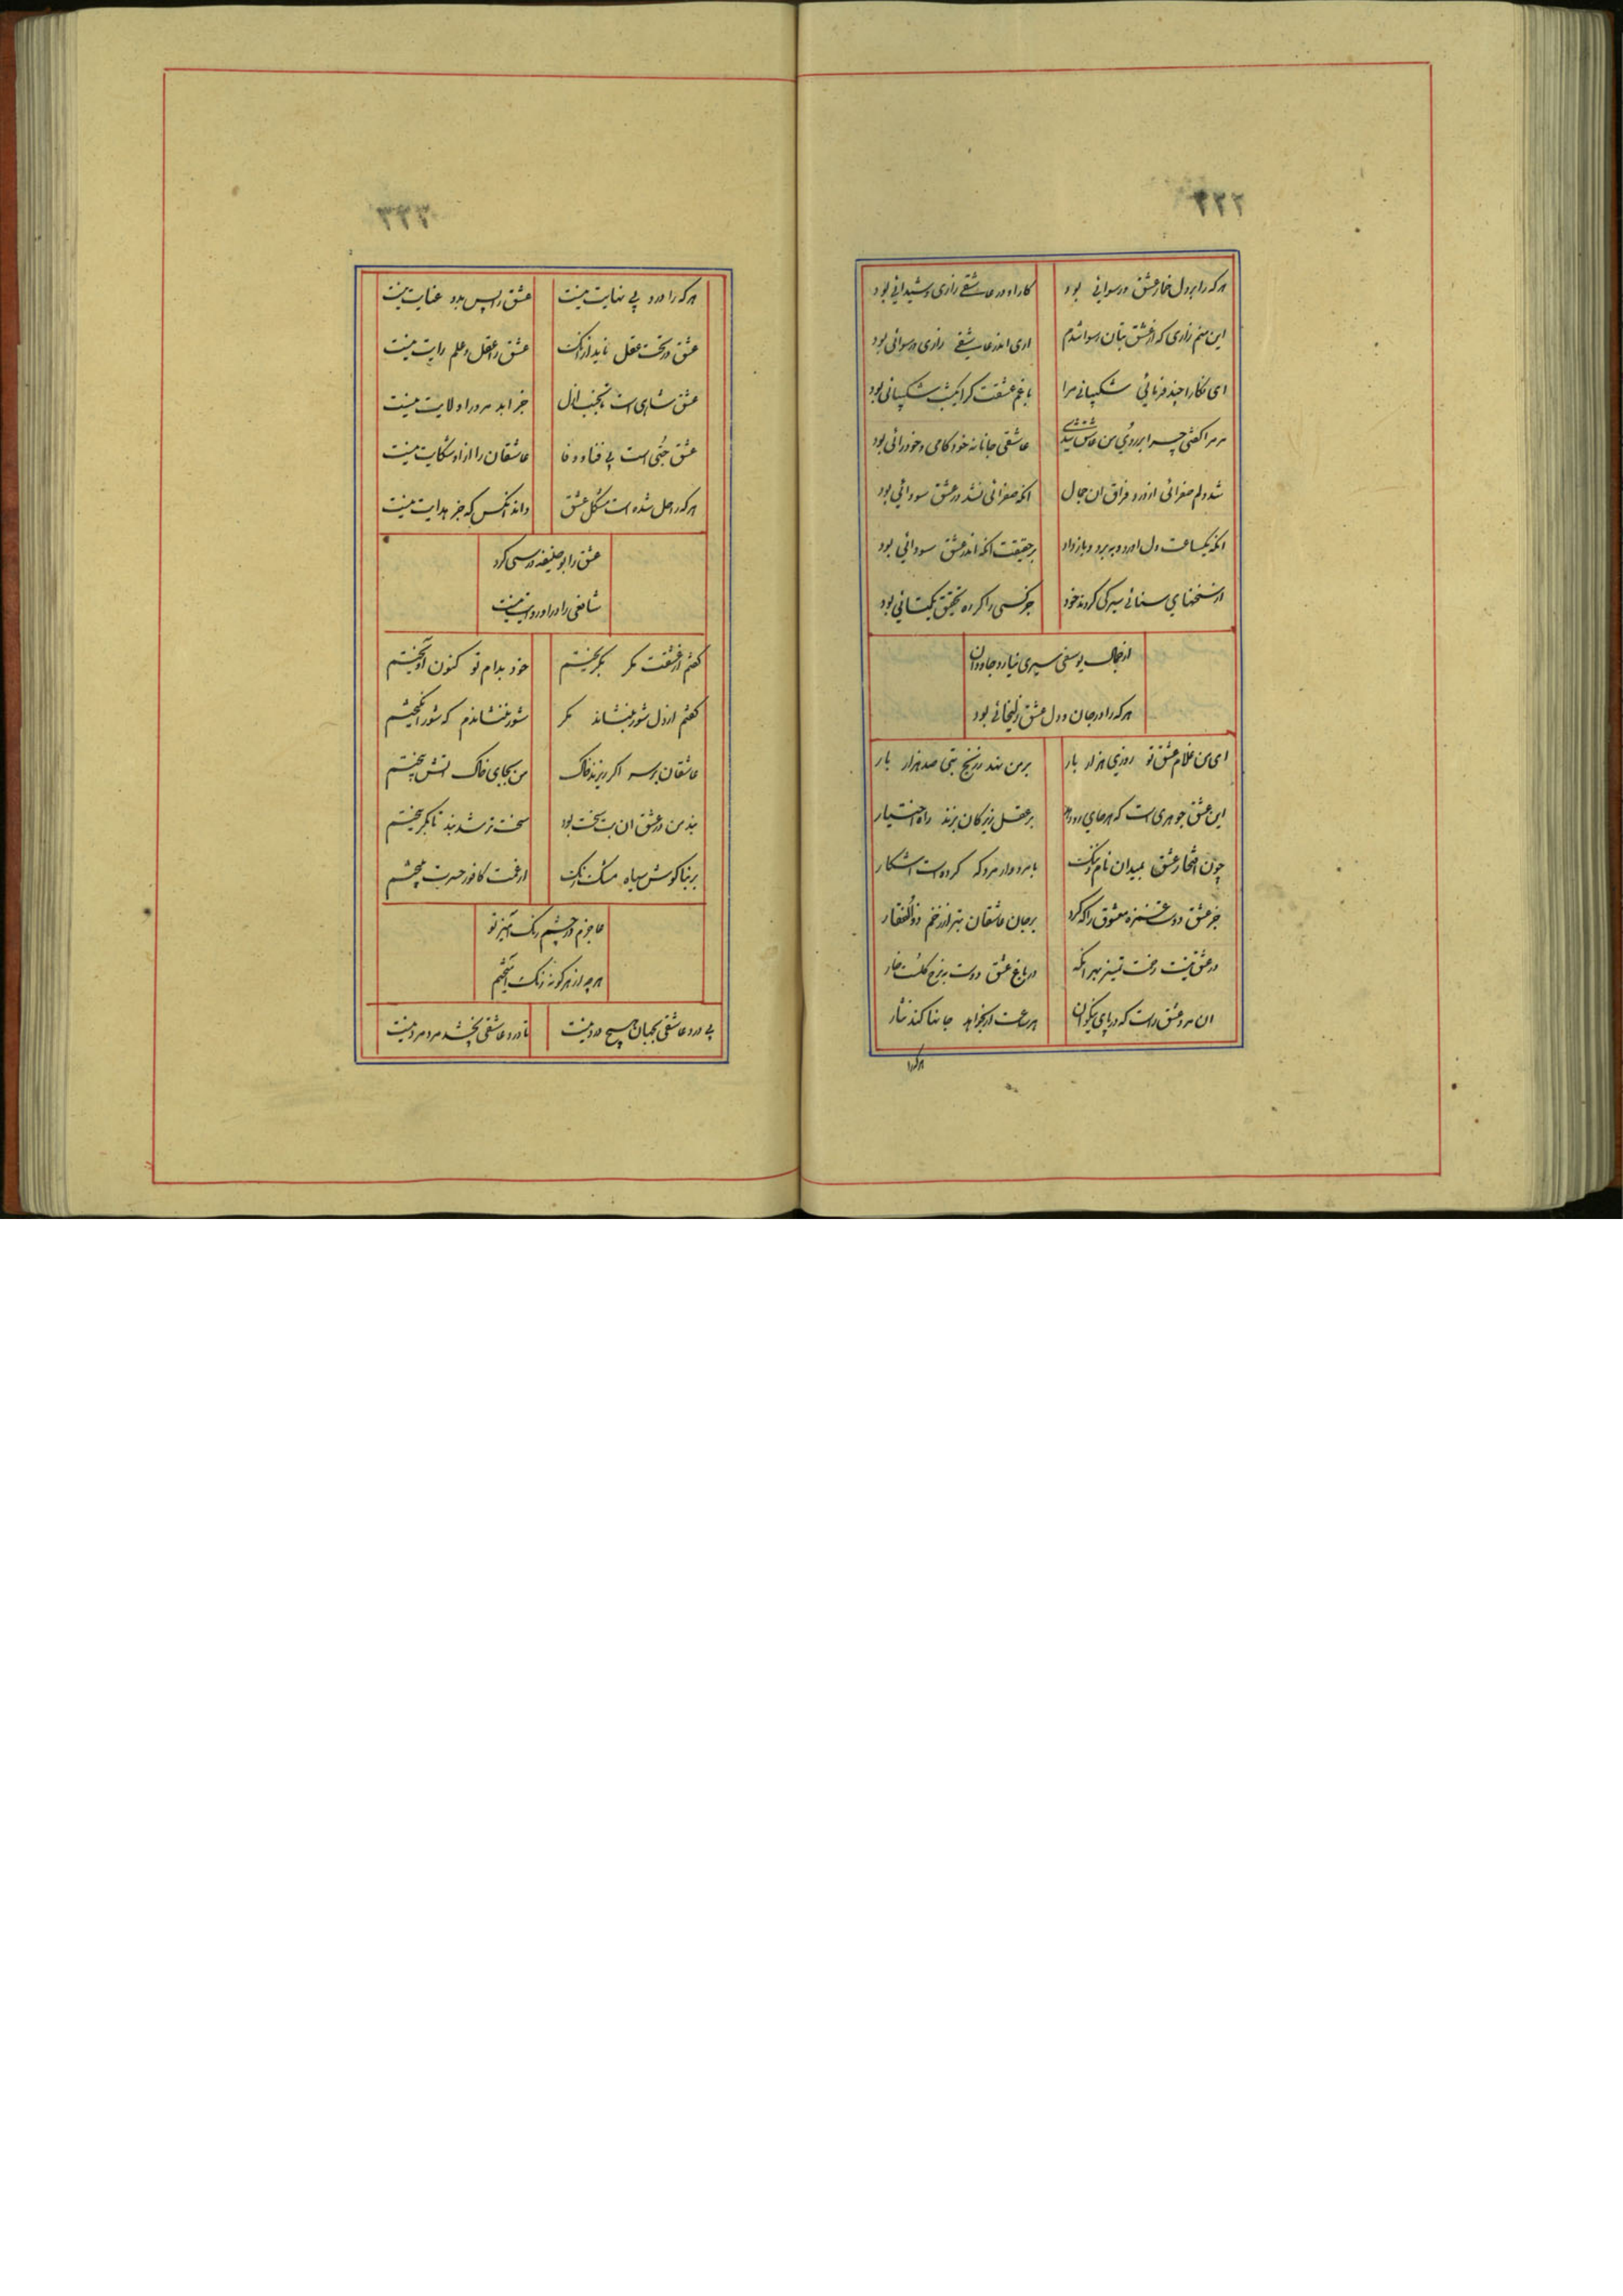 ۲۲۲
هرکه را بر دل خمار عشق و رسوائی بود کار او در عاشقی زاری و شیدائی بود
این منم زاری که از عشق بتان رسوا شدم اری اندر عاشقی زاری و رسوائی بود
ای نکارا چند فرمائی شکیبائی مرا با غم عشقت کرا یکشب شکیبائی بود
مر مرا کفتی چرا بر روی من عاشق شدی عاشقی جانا نه خودکامی و خودرائی بود
شد دلم صفرائی از درد فراق ان جمال انکه صفرائی نشد در عشق سودائی بود
انکه یکساعت دل اورد و ببرد و باز داد بر حقیقت انکه اندر عشق سودائی بود
از سخنهای سنائی سیر کی کردند خود جز کسی را کر ره تحقیق یکتائی بود
از جمال یوسفی سیری نیارد جاودان
هرکه را در جان و دل عشق زلیخائی بود
ای من غلام عشق تو روزی هزار بار بر من نهد ز رنج بتی صد هزار بار
این عشق جوهری است که هرجای رو دهد بر عقل زیرکان بزند راه اختیار
چون افتخار عشق بمیدان نام و ننک با مرد و از مرد که کرده است اشکار
جز عشق دوست غمزه معشوق را که کرد بر جان عاشقان بتر از زخم ذوالفقار
در عشق نیست زحمت تمییز بهر انکه در باغ عشق دوست بنرخ کلست خار
ان مرد عشق راست که در پای نیکوان هر ساعت ار بخواهد جانها کند نثار
هرکرا
۲۲۳
هرکه را درد بی نهایت نیست عشق را پس بدو عنایت نیست
عشق در تخت عقل ناید از انک عشق را عقل و علم رایت نیست
عشق شاهی است بتخت ازل جز ابد مر ورا ولایت نیست
عشق حیی است بی فنا و وفا عاشقان را از او شکایت نیست
هرکه را حل شده است مشکل عشق داند انکس که جز هدایت نیست
عشق را بوحنیفه درس نکرد
شافعی را در او روایت نیست
کفتم از عشقت مکر بکریختم خود بدام تو کنون اویختم
کفتم از دل شور بنشاند مکر شور ننشاندم که شور انکیختم
عاشقان بر سر اکر ریزند خاک من بجای خاک اتش بیختم
بند من در عشق ان بت سخت بود سخت تر شد بند تا بکریختم
بر بناکوش سیاه مشک رنک از غمت کافور حسرت بیختم
عاجزم در چشم رنک امیز تو
هرچه از هرکونه رنک امیختم
بی درد عاشقی بجهان هیچ درد نیست تا درد عاشقی نچشد مرد مرد نیست